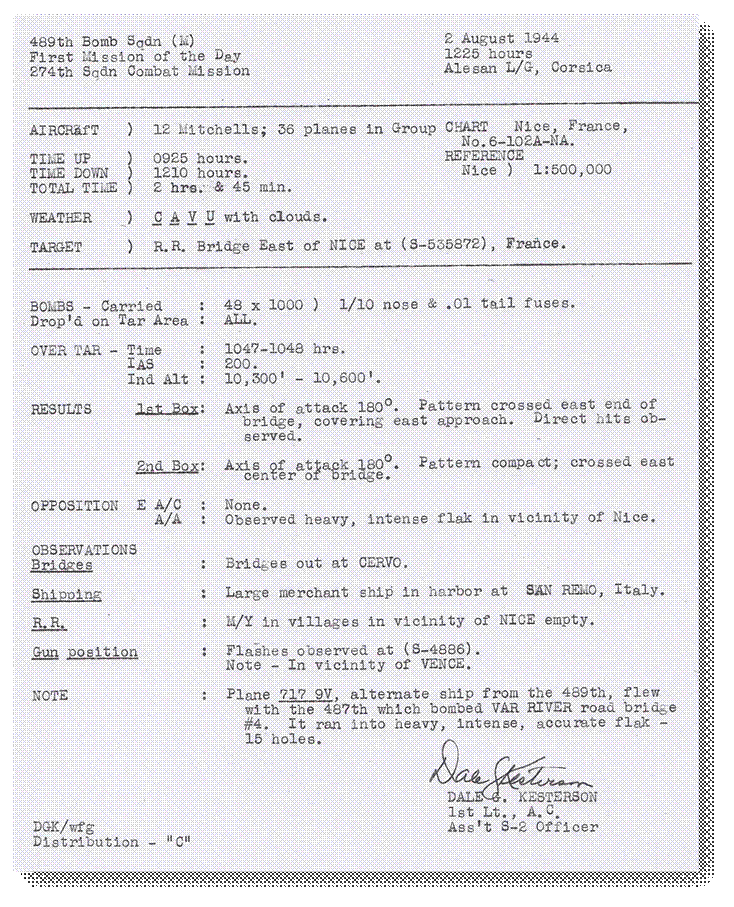 489th Bomb Sqdn (M) 2 August 1944
First Mission of the Day 1225 hours
274th Sqdn Combat Mission Alesan L/G, Corsica
AIRCRAfT ) 12 Mitchells; 36 planes in Group CHART Nice, France,
No.6-102A-NA.
TIME UP ) 0925 hours. REFERENCE
TIME DOWN ) 1210 hours. Nice ) 1:500,000
TOTAL TIME ) 2 hrs. & 45 min.
WEATHER ) C A V U with clouds.
TARGET ) R.R. Bridge East of NICE at (S-535872), France.
BOMBS - Carried : 48 x 1000 ) 1/10 nose & .01 tail fuses.
Drop'd on Tar Area : ALL.
OVER TAR - Time : 1047-1048 hrs.
IAS : 200.
Ind Alt : 10,300' - 10,600'.
RESULTS 1st Box: Axis of attack 180°. Pattern crossed east end of
bridge, covering east approach. Direct hits ob-
served.
2nd Box: Axis of attack 180°. Pattern compact; crossed east
center of bridge.
OPPOSITION E A/C : None.
A/A : Observed heavy, intense flak in vicinity of Nice.
OBSERVATIONS
Bridges : Bridges out at CERVO.
Shipping : Large merchant ship in harbor at SAN REMO, Italy.
R.R. : M/Y in villages in vicinity of NICE empty.
Gun position : Flashes observed at (S-4886).
Note - In vicinity of VENCE.
NOTE : Plane 717 9V, alternate ship from the 489th, flew
with the 487th which bombed VAR RIVER road bridge
#4. It ran into heavy, intense, accurate flak -
15 holes.
Dale G Kesterson
DALE G. KESTERSON
1st Lt., A.C.
DGK/wfg Ass't S-2 Officer
Distribution - "C"